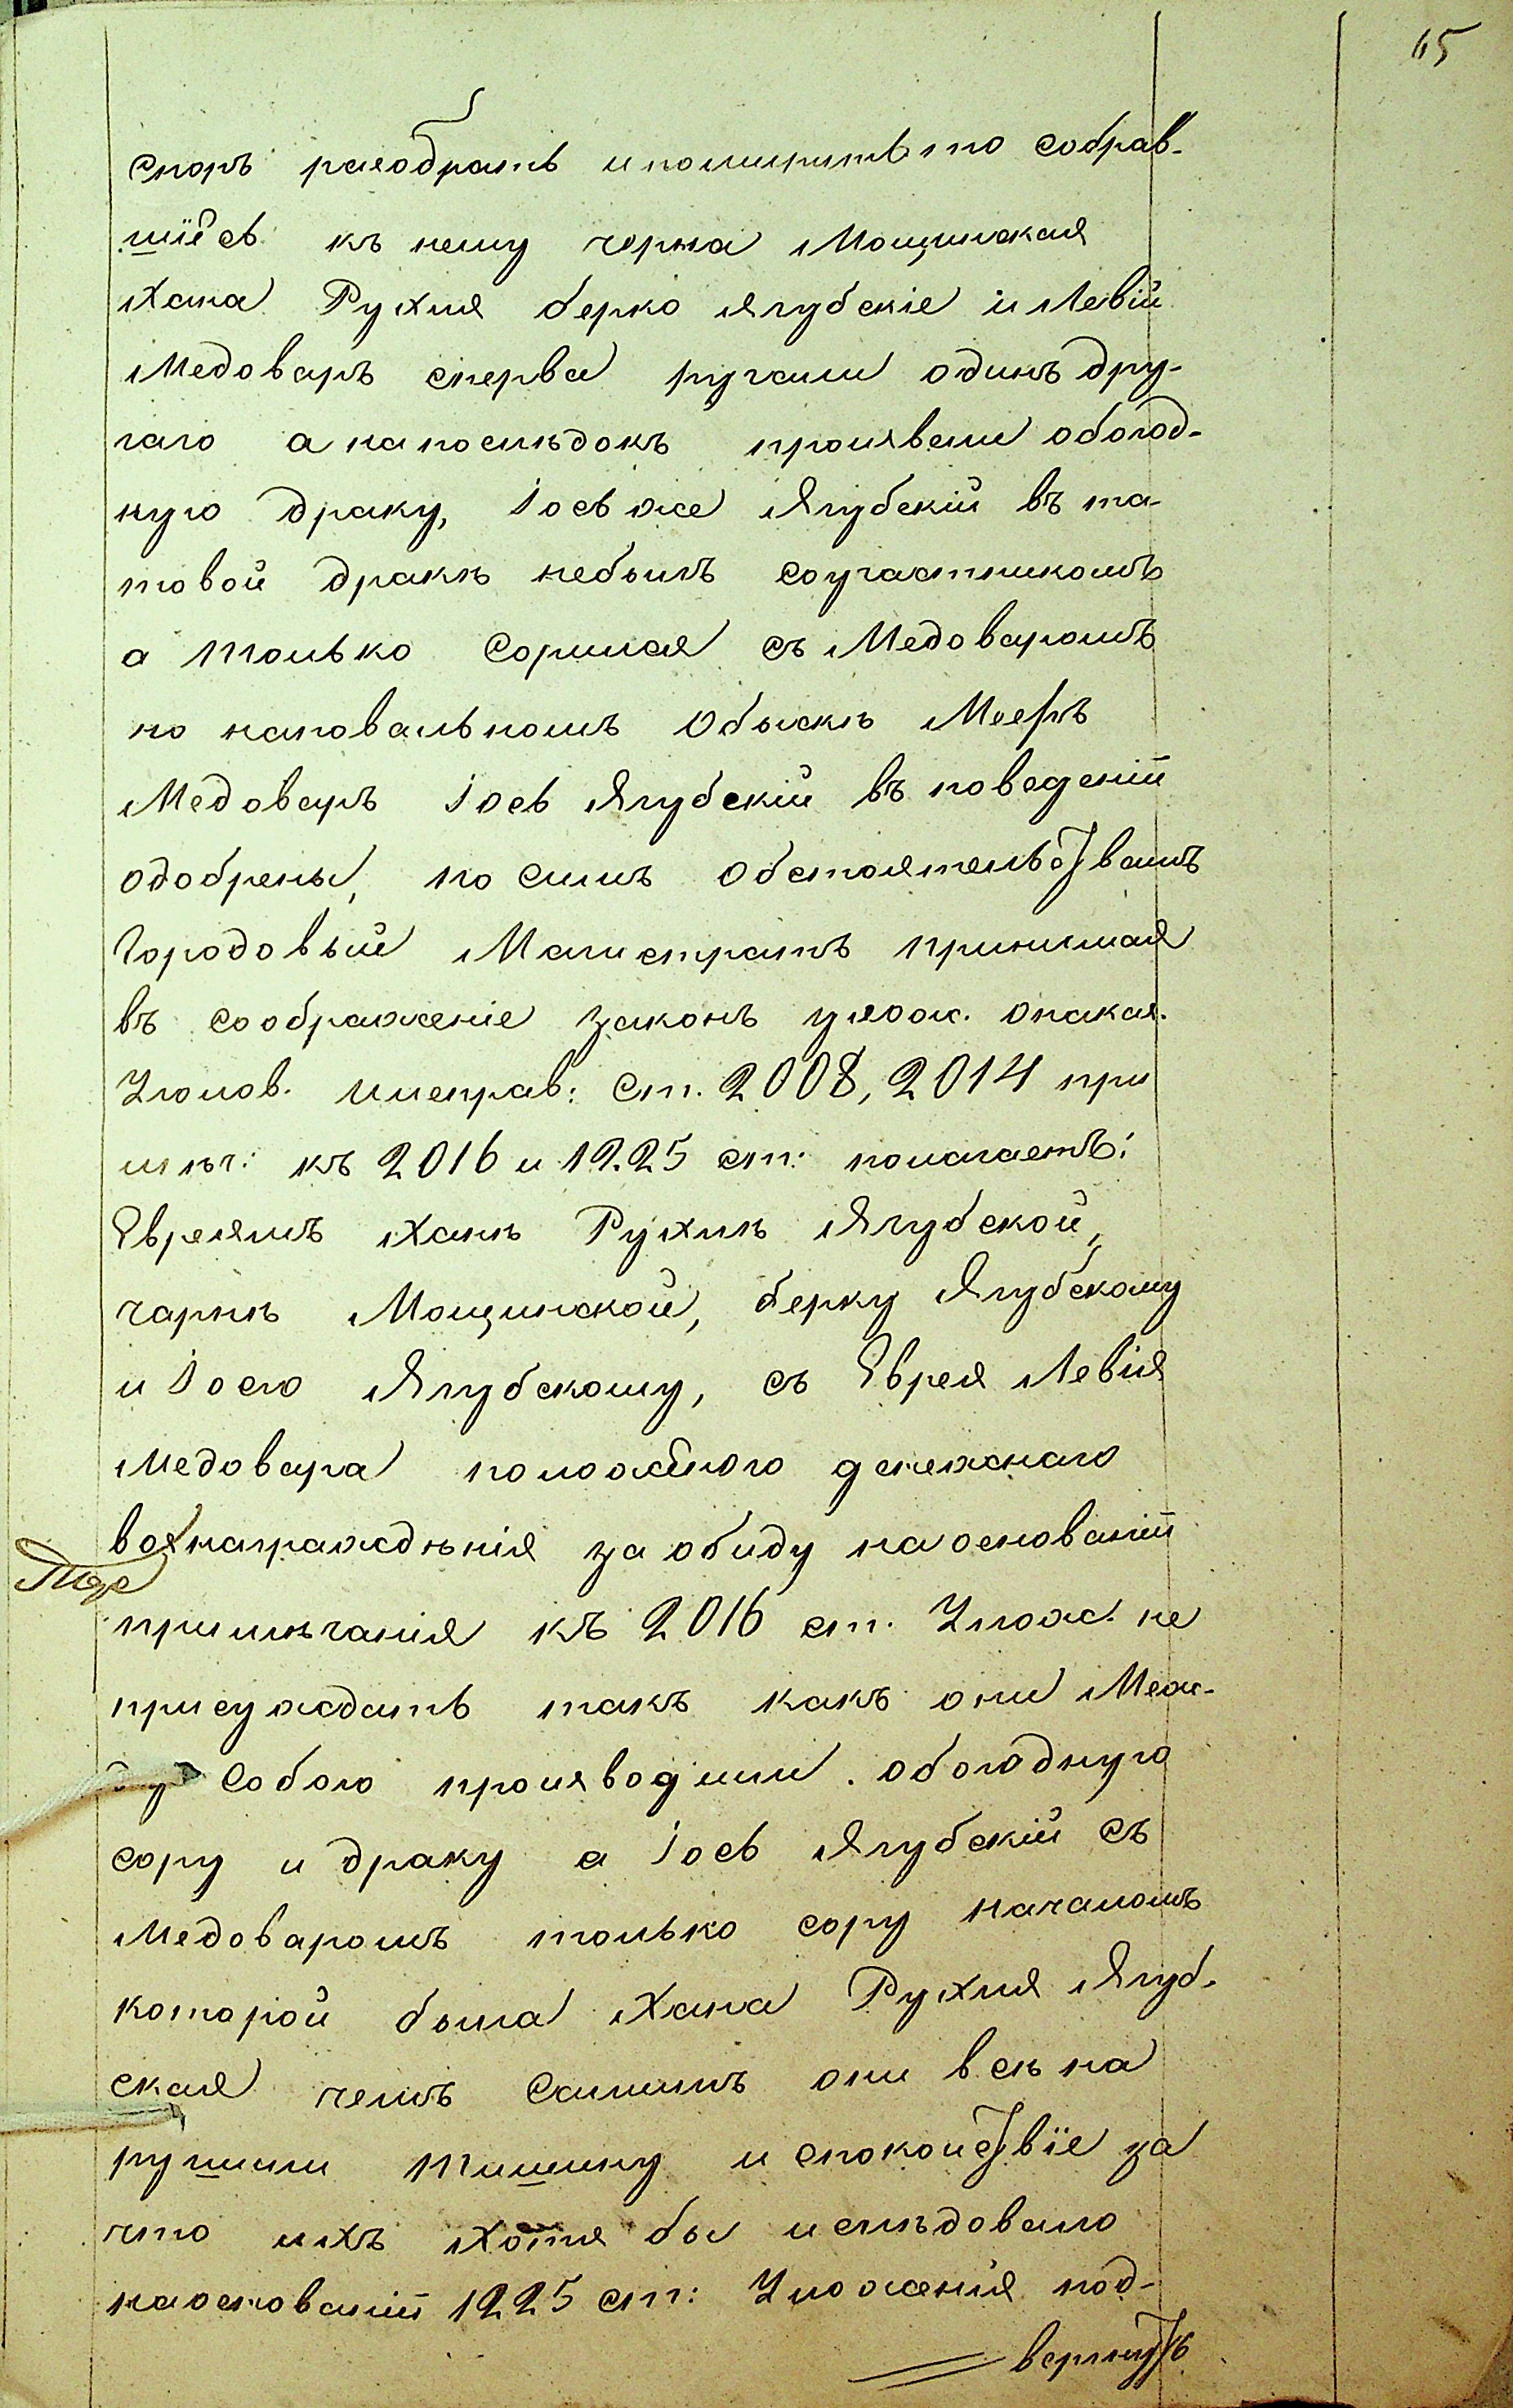 65
споръ разобрать и помирить то собрав-
шіесь къ нему черна Мощинская
Хана Рухля берко Ягубскіе и Левій
Медоваръ сперва ругали одинъ дру-
гаго а напослѣдокъ произвели обоюд-
ную драку, Іось же Ягубскій въ та-
товой дракѣ небылъ соучастникомъ
а только сорился съ Медоваромъ
по наповальномъ обыскѣ Мееръ
Медоваръ Іось Ягубскій въ поведеніи
одобрены, по симъ обстоятельствамъ
Городовый Магистратъ принимая
въ соображеніе законъ улож. о наказ.
Уголов. и исправ: ст. 2008, 2014 при
мѣч: къ 2016 и 1225 ст: полагаетъ:
Евреямъ Ханѣ Рухлѣ Ягубской,
чарнѣ Мощинской, берку Ягубскому
и Іосю Ягубскому, съ Еврея Левія
Медовара положеного денежнаго
вознагражденія за обиду на основаніи
примѣчанія къ 2016 ст. Улож. не
присуждать такъ какъ они Меж-
ду собою производили обоюдную
сору и драку а Іось Ягубскій съ
Медоваромъ только сору началомъ
которой была Хана Рухля Ягуб-
ская чемъ самымъ они всѣ на
рушили тишину и спокойствіе за
что ихъ хотя бы и слѣдовало
на основаніи 1225 ст: Уложенія под-
вергнуть